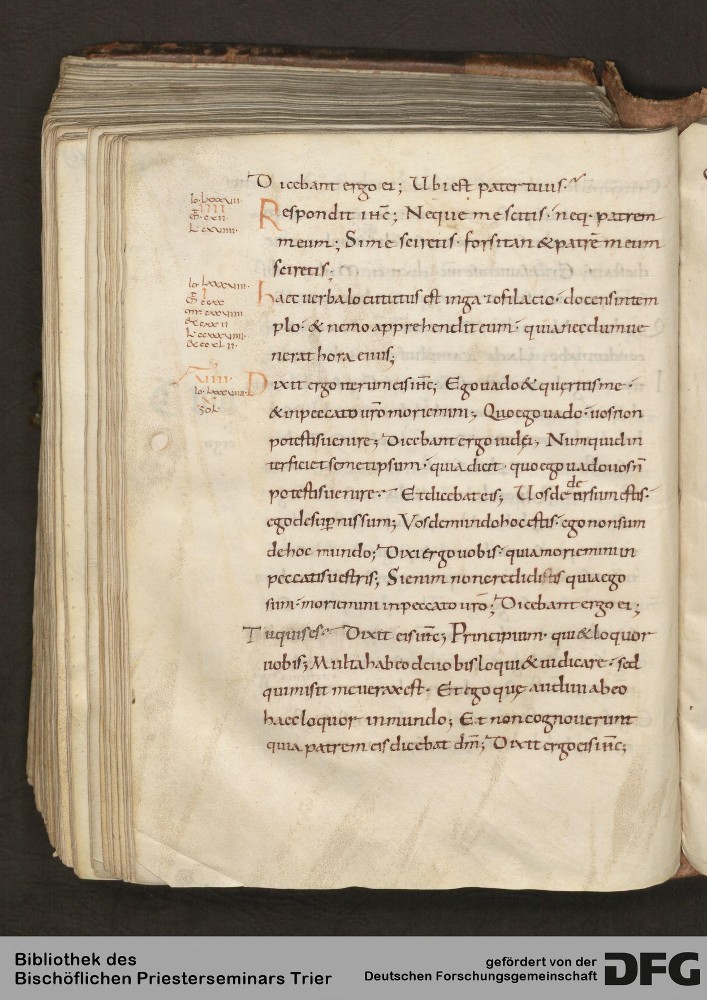 Dicebant ergo ei; Ubi est pater tuus·
Respondit ihc; Neque me scitis· neq· patrem
meum; Si me sciretis· forsitan & patrē meum
sciretis;
haec uerba locututus est in gazofilacio· docens in tem
plo· & nemo apprehendit eum· quia nec dum ue
nerat hora eius;
Dixit ergo iterum eis ihc; Ego uado & queritis me·
& in peccato uro moriemini; Quo ego uado· uos non
potestis uenire; Dicebant ergo iudei; Numquid in
terficiet semetipsum· quia dicit· quo ego uado uos n̄
potestis uenire· Et dicebat eis; Uos de de orsum estis·
ego de sup̄nis sum; Vos de mundo hoc estis· ego non sum
de hoc mundo; Dixi ergo uobis· quia moriemini in
peccatis uestris; Si enim non credidistis quia ego
sum· moriemini in peccato uro; Dicebant ergo ei;
Tu quis es· Dixit eis ihc; Principium· qui & loquor
uobis; Multa habeo de uobis loqui & iudicare· sed
qui misit me uerax est· Et ego quę audiui ab eo
haec loquor in mundo; Et non cognouerunt
quia patrem eis dicebat dm̄; Dixit ergo eis ihc;
Bibliothek des
Bischöflichen Priesterseminars Trier
gefördert von der
Deutschen Forschungsgemeinschaft
DFG